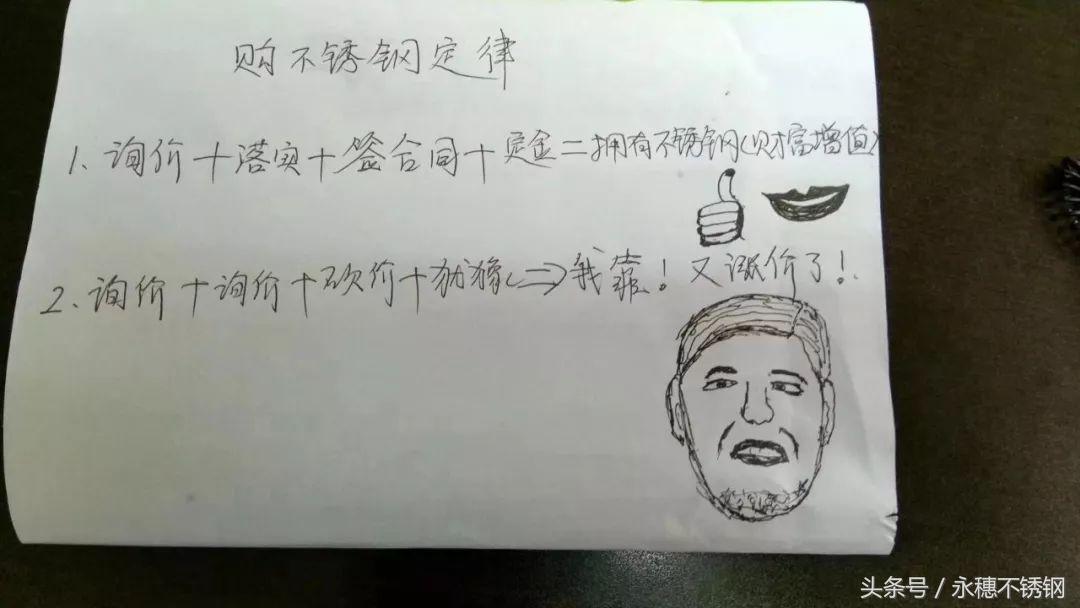 购不锈钢定律
1、询价+落实+签合同+定金=拥有不锈钢(财富增值)
2、询价+询价+砍价+犹豫(=)我靠!又涨价了!
头条号 / 永穗不锈钢